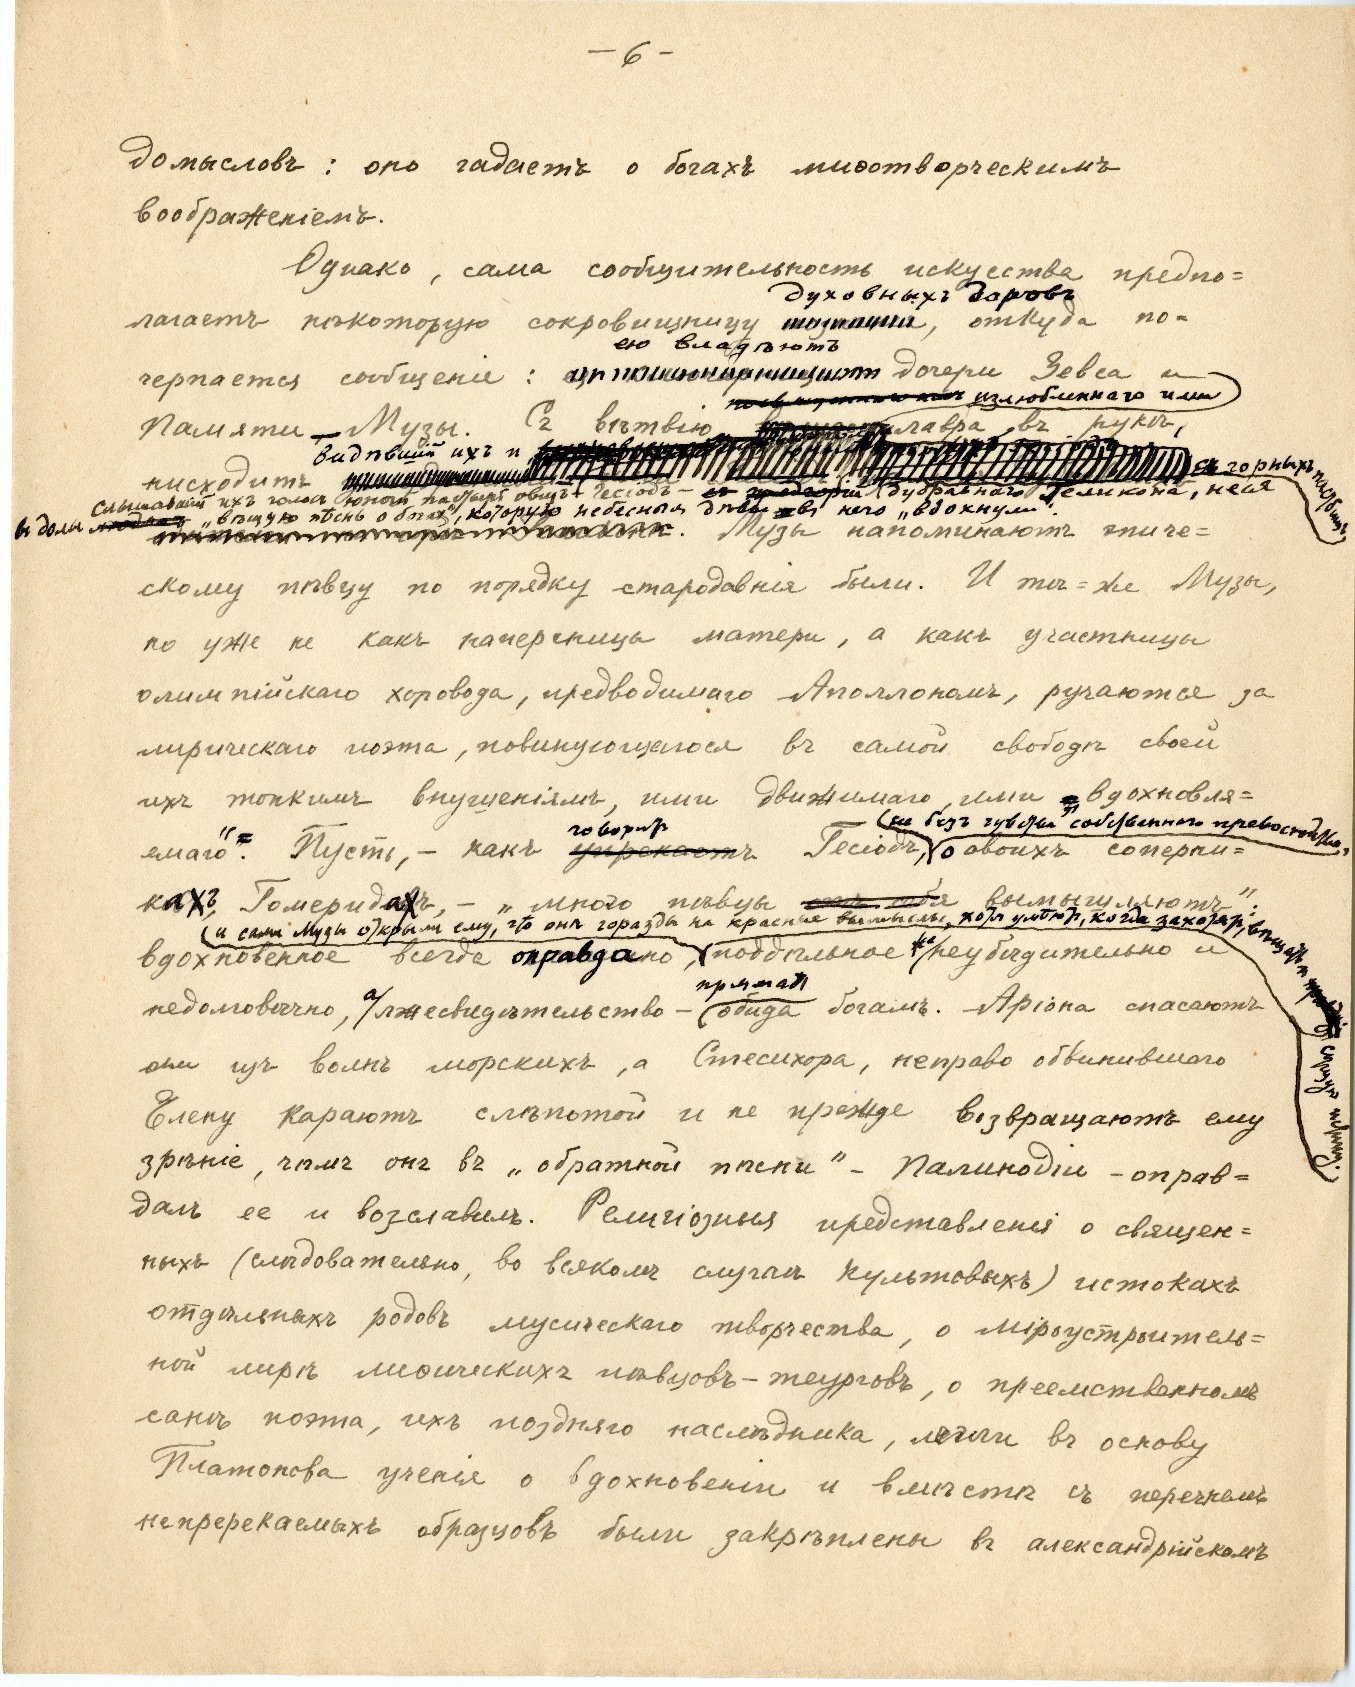 — 6 —
домысловъ: оно гадаетъ о богахъ миѳотворческимъ
воображеніемъ.
Однако, сама сообщительность искусства предпо=
духовныхъ даровъ
лагаетъ нѣкоторую сокровищницу, откуда по=
ею владѣютъ
черпается сообщеніе: дочери Зевса и
излюбленнаго ими
Памяти — Музы. Съ вѣтвію лавра въ рукѣ,
видѣвшій ихъ и
нисходитъ
съ горныхъ пастбищъ
слышавшій ихъ голоса юный пастырь овецъ Гесіодъ — дубравнаго Геликона, неся
въ долы „вѣщую пѣснь о богахъ", которую небесныя дѣвы въ него „вдохнули".
Музы напоминаютъ эпиче=
скому пѣвцу по порядку стародавнія были. И тѣ=же Музы,
но уже не какъ наперсницы матери, а какъ участницы
олимпійскаго хоровода, предводимаго Аполлономъ, ручаются за
лирическаго поэта, повинующагося въ самой свободѣ своей
ихъ тонкимъ внушеніямъ, ими движимаго, ими „вдохновля=
(не безъ чувства собственнаго превосходства,
говоритъ
емаго". Пусть, — какъ упрекаетъ Гесіодъ, о своихъ соперни=
кахъ, Гомеридахъ, — „много пѣвцы отъ себя вымышляютъ":
(и сами Музы открыли ему, что онѣ горазды на красные вымыслы, хотя умѣютъ, когда захотятъ, вѣщать и
вдохновенное всегда оправдано, поддѣльное же неубѣдительно и
прямая
недолговѣчно, а лжесвидѣтельство — обида богамъ. Аріона спасаютъ
они изъ волнъ морскихъ, а Стесихора, неправо обвинившаго
Елену караютъ слѣпотой и не прежде возвращаютъ ему
зрѣніе, чѣмъ онъ въ „обратной пѣсни" — Палинодіи — оправ=
далъ ее и возславилъ. Религіозныя представленія о священ=
ныхъ (слѣдовательно, во всякомъ случаѣ культовыхъ) истокахъ
отдѣльныхъ родовъ мусическаго творчества, о міроустроитель=
ной лирѣ миѳическихъ пѣвцовъ—теурговъ, о преемственномъ
санѣ поэта, ихъ поздняго наслѣдника, легли въ основу
Платонова ученія о вдохновеніи и вмѣстѣ съ перечнемъ
непререкаемыхъ образцовъ были закрѣплены въ александрійскомъ